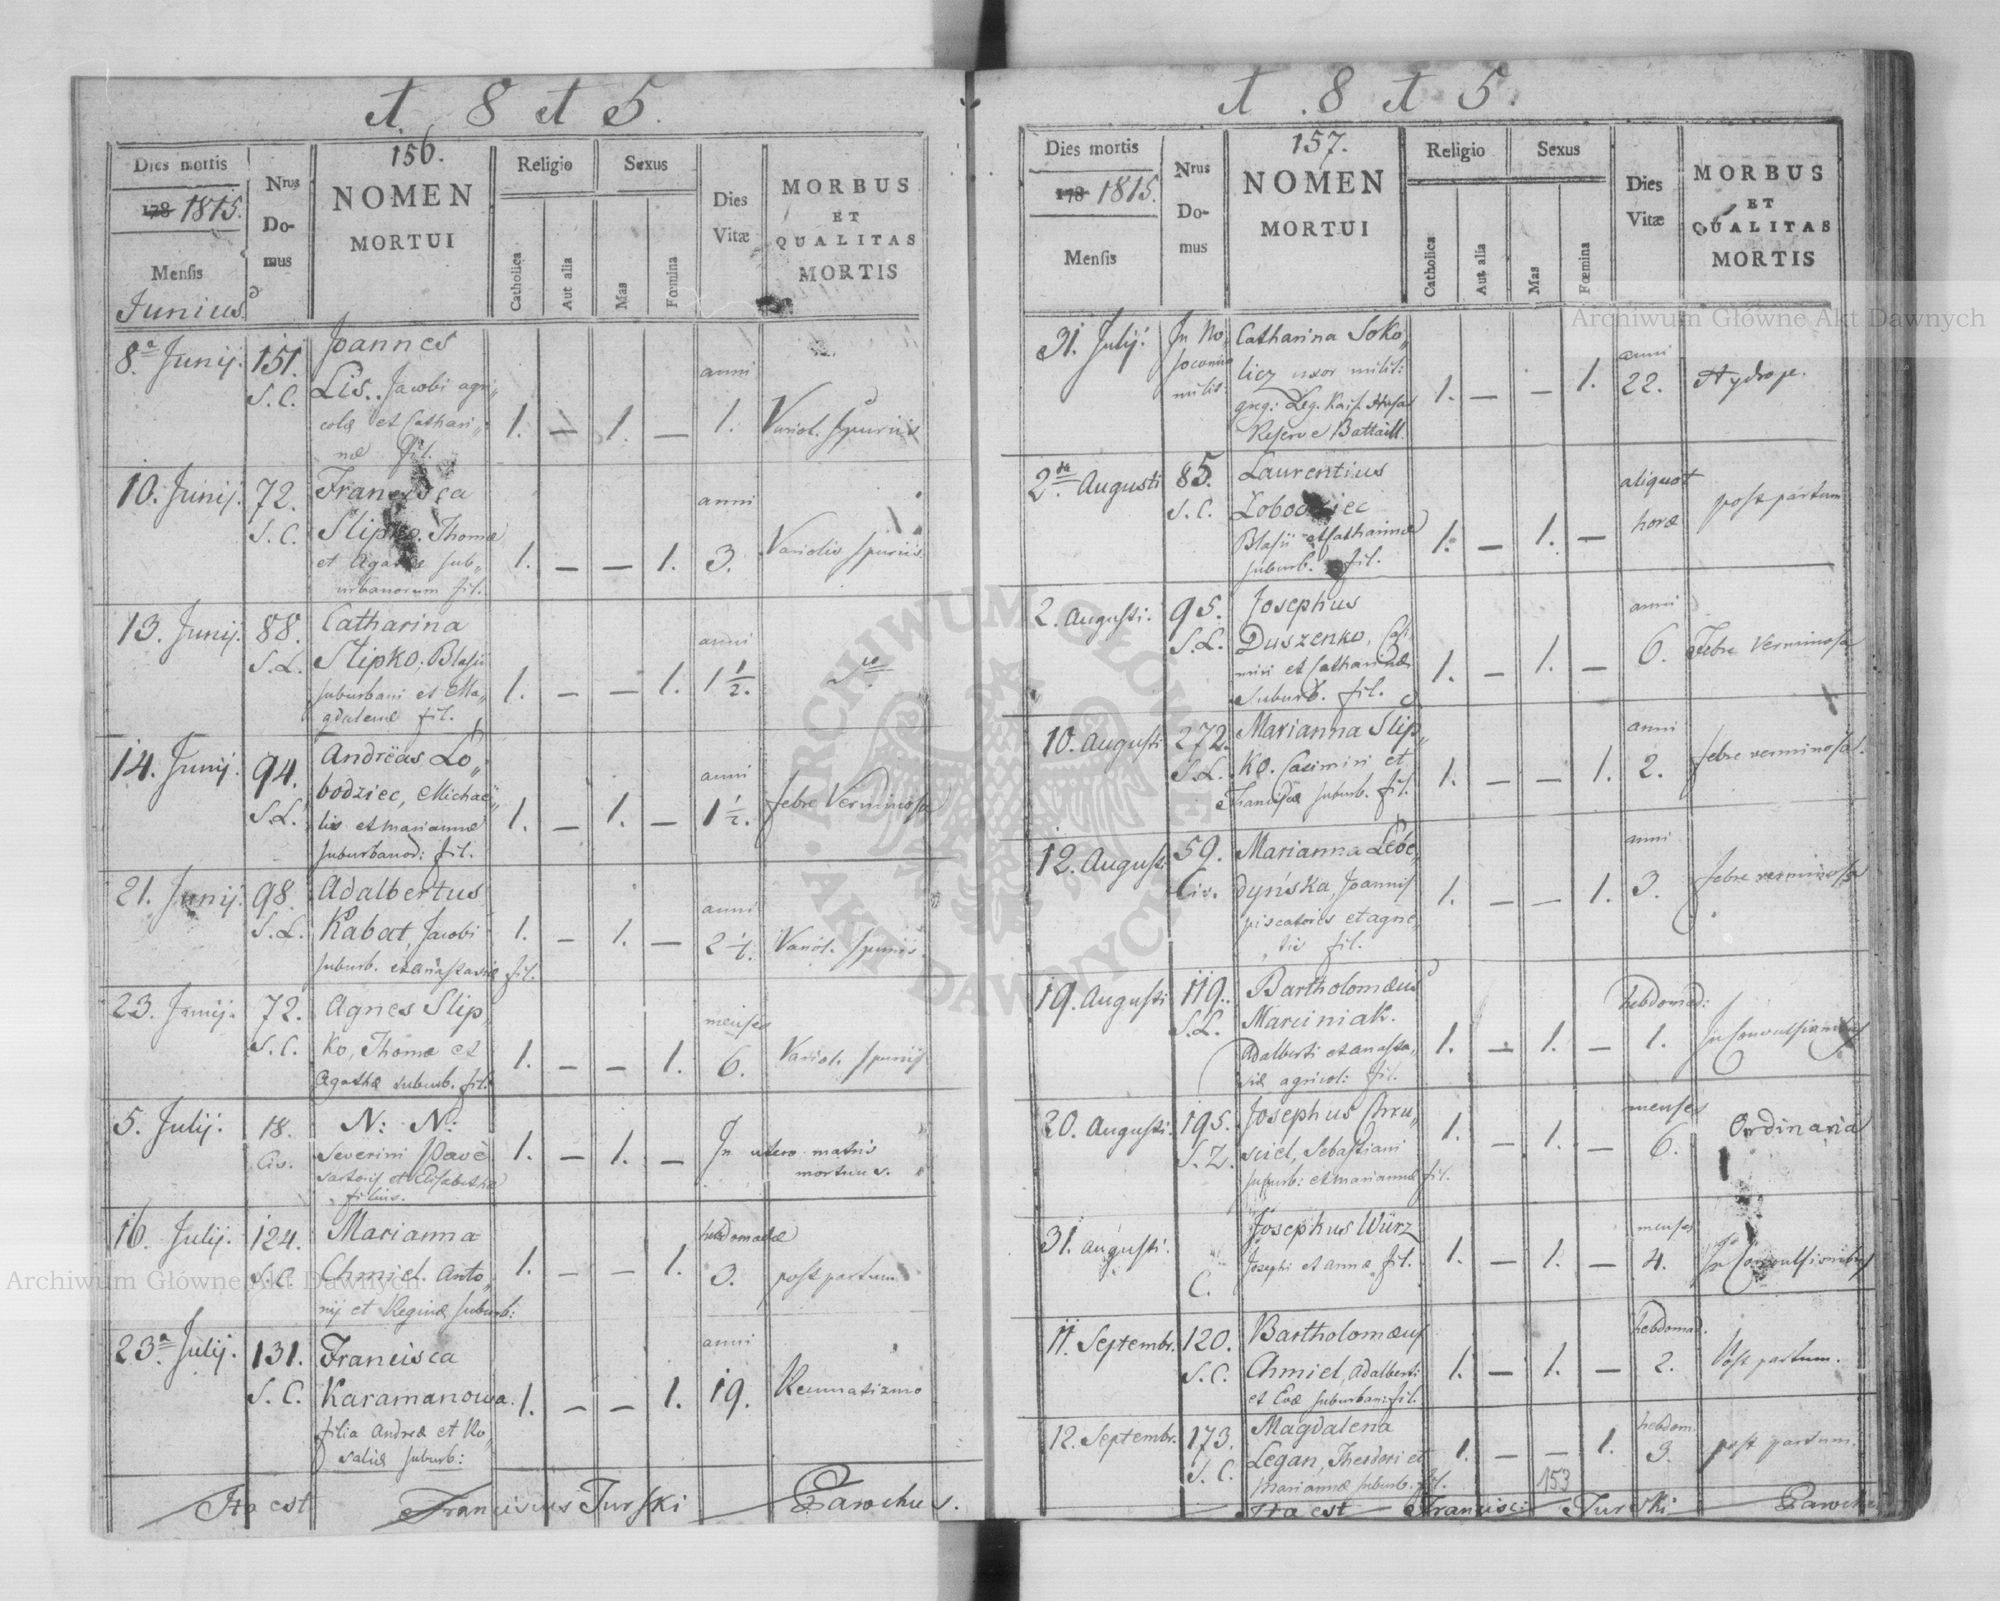 A. 8 et 5.
Dies mortis
178 1815.
Mensis
Junius
Nrus
Do-
mus
156.
NOMEN
MORTUI
Religio
Catholica
Aut alia
Sexus
Mas
Fœmina
Dies
Vitæ
MORBUS
ET
QUALITAS
MORTIS
8a Junij. 151. Joannes anni
S.C. Lis. Jacobi agri„
colæ et Cathari„ 1. — 1. — 1. Variol. spuriis
næ fil.
10. Junij. 72. Francisca anni
S.C. Slipko. Thomæ
et Agathæ sub„ 1. — — 1. 3. Variolis spuriis.
urbanorum fil.
13. Junij. 88. Catharina anni
S.L. Slipko, Blasii
suburbani et Ma„ 1. — — 1. 1 1/2.
gdalenæ fil.
14. Junij. 94. Andreas Ło„ anni
S.L. bodziec, Michaë„
lis et Mariannæ 1. — 1. — 1 1/2. febre Verminosa
suburbanor: fil.
21. Junij. 98. Adalbertus anni
S.L. Kabat, Jacobi 1. — 1. — 2 Variol. spuriis.
suburb. et Anastasiæ fil.
23. Junij. 72. Agnes Slip„ menses
S.C. ko, Thomæ et 1. — — 1. 6. Variol. spuriis
Agathæ suburb. fil.
5. Julij. 18. N: N:
Civ. Severini 1. — 1. — In utero matris
sartoris et Elisabethæ mortuus.
filius.
16. Julij. 124. Marianna hebdomadæ
S.C. Chmiel. Anto„ 1. — — 1. 3. post partum
nij et Reginæ suburb:
23.a Julij. 131. Francisca anni
S.C. Karamanowa. 1. — — 1. 19. Reumatizmo
filia Andreæ et Ro„
saliæ suburb:
Ita est Franciscus Turski Parochus.
A. 8 et 5.
Dies mortis
178 1815.
Mensis
Nrus
Do-
mus
157.
NOMEN
MORTUI
Religio
Catholica
Aut alia
Sexus
Mas
Fœmina
Dies
Vitæ
MORBUS
ET
QUALITAS
MORTIS
31. Julij. In No„ Catharina Soko„ anni
socomio licz uxor milit: 1. — — 1. 22. Hydrope.
milit. greg: Leg. Kais.
Reserve Battaill.
2da Augusti 85. Laurentius aliquot
S.C. Łobodziec horæ post partum
Blasii et Catharinæ 1. — 1. —
suburb. fil.
2. Augusti. 95. Josephus anni
S.L. Duszenko, Casi„ 6. Febre Verminosa
miri et Catharinæ 1. — 1. —
Suburb. fil.
10. Augusti 272. Marianna Slip„ anni
S.L. ko. Casimiri et 1. — — 1. 2. febre verminosa.
Franciscæ suburb. fil.
12. Augusti 59. Marianna Łebe„ anni
Civ. dyńska, Joannis 1. — — 1. 3. febre verminosa
piscatoris et Agne„
tis fil.
19. Augusti 119. Bartholomæus hebdomad:
S.L. Marciniak. 1. — 1. — 1. In Convulsionibus
Adalberti et Anasta„
siæ agricol: fil.
20. Augusti. 195. Josephus Chru„ menses
S.Z. sciel, Sebastiani 1. — 1. — 6. Ordinaria
suburb: et Mariannæ fil.
31. Augusti. Josephus Würz menses
C. Josephi et Annæ fil. 1. — 1. — 4. In Convulsionibus
11. Septembr. 120. Bartholomæus hebdomad.
S.C. Chmiel, Adalberti 1. — 1. — 2. Post partum.
et Evæ suburban: fil.
12. Septembr. 173. Magdalena hebdom.
S.C. Legan, Theodori et 1. — — 1. 3. post partum.
Mariannæ suburb. fil. 153
Ita est Francisc: Turski Parochus
Archiwum Główne Akt Dawnych
Archiwum Główne Akt Dawnych
ARCHIWUM GŁÓWNE · AKT DAWNYCH ·